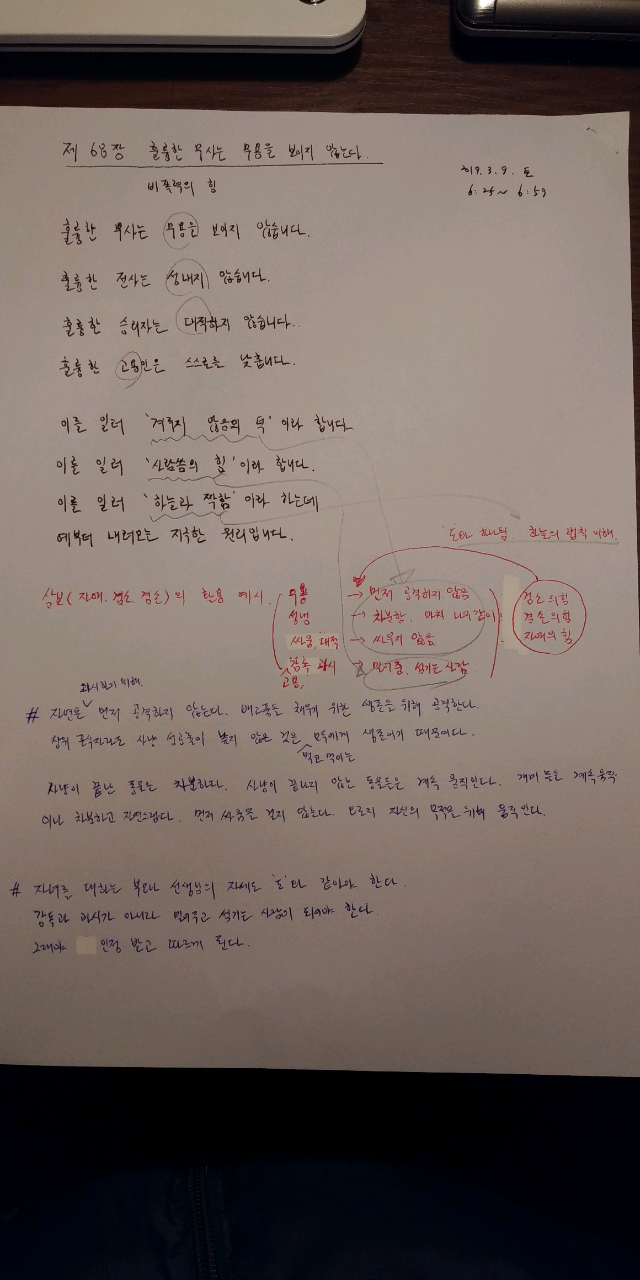 제 68장 훌륭한 무사는 무용을 보이지 않는다.
비폭력의 힘
2019. 3. 9. 토
6:25 ~ 6:59
훌륭한 무사는 무용을 보이지 않습니다.
훌륭한 전사는 성내지 않습니다.
훌륭한 승리자는 대적하지 않습니다.
훌륭한 고용인은 스스로를 낮춥니다.
이를 일러 '겨루지 않음의 덕'이라 합니다
이를 일러 '사람씀의 힘'이라 합니다.
이를 일러 '하늘과 짝함'이라 하는데
예부터 내려오는 지극한 원리입니다.
'도'와 하나됨 하늘의 법칙 이해.
삼보(자애. 검소 겸손)의 활용 예시.
무용 → 먼저 공격하지 않음 검소의 힘
성냄 → 차분한. 마치 나무같이 겸손의 힘
싸움, 대적 → 싸우지 않음 자애의 힘
감독 과시 믿어줌, 섬기는 사람
고용,
과시하기 위해
# 자연은 먼저 공격하지 않는다. 배고픔을 채우기 위한 생존을 위해 공격한다.
상위 포수자라도 사냥 성공률이 높지 않은 것은 모두에게 생존이기 때문이다.
먹고 먹이는
사냥이 끝난 동물은 차분하다. 사냥이 끝나지 않는 동물들은 계속 움직인다. 개미들은 계속 움직
이나 차분하고 자연스럽다. 먼저 싸움을 걷지 않는다. 오로지 자신의 목적을 위해 움직인다.
# 자녀를 대하는 부모와 선생님의 자세도 '도'와 같아야 한다.
감독과 과시가 아니라 믿어주고 섬기는 사람이 되어야 한다.
그래야 인정 받고 따르게 된다.